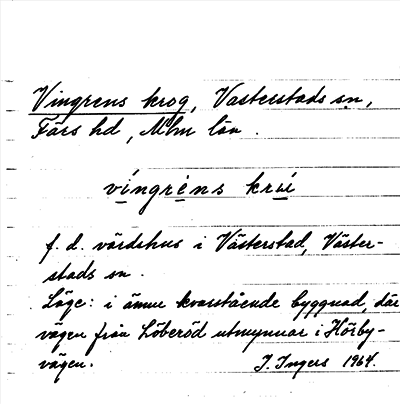 Vingrens krog, Västerstads sn,
Färs hd, Mlm län.
víngrèns krúi
f. d. värdshus i Västerstad, Väster-
stads sn.
Läge: i ännu kvarstående byggnad, där
vägen från Löberöd utmynnar i Hörby-
vägen. I. Ingers 1964.